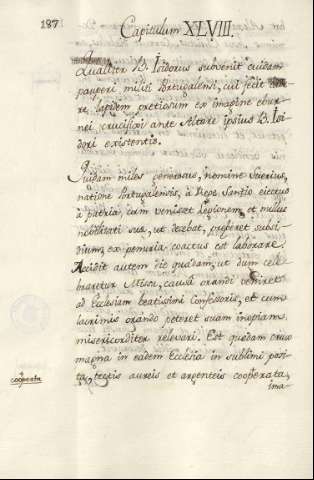 187
Capitulum XLVIII.
Qualiter B. Isidorus subvenit cuidam
pauperi militi Portugalensi, cui fecit
re lapidem pretiosum ex imagine ebur-
nei crucifixi ante Altare ipsius B. Isi-
dori existentis.
Quidam miles generosus, nomine
natione Portugalensis, à Rege Santio eiectus
à patria, cum venisset Legionem, et nullus
nobilitati suæ, ut decebat, præberet subsi-
dium, ex penuria coactus est laborare.
Accidit autem die quadam, ut dum cele-
braretur Missa, causâ orandi veniret
ad Ecclesiam beatissimi Confessoris, et cum
lacrimis orando peteret suam inopiam
misericorditer relevari. Est quædam crux
magna in eadem Ecclesia in sublimi posi-
ta, tegtis aureis et argenteis cooperata,
cooperta
ima-